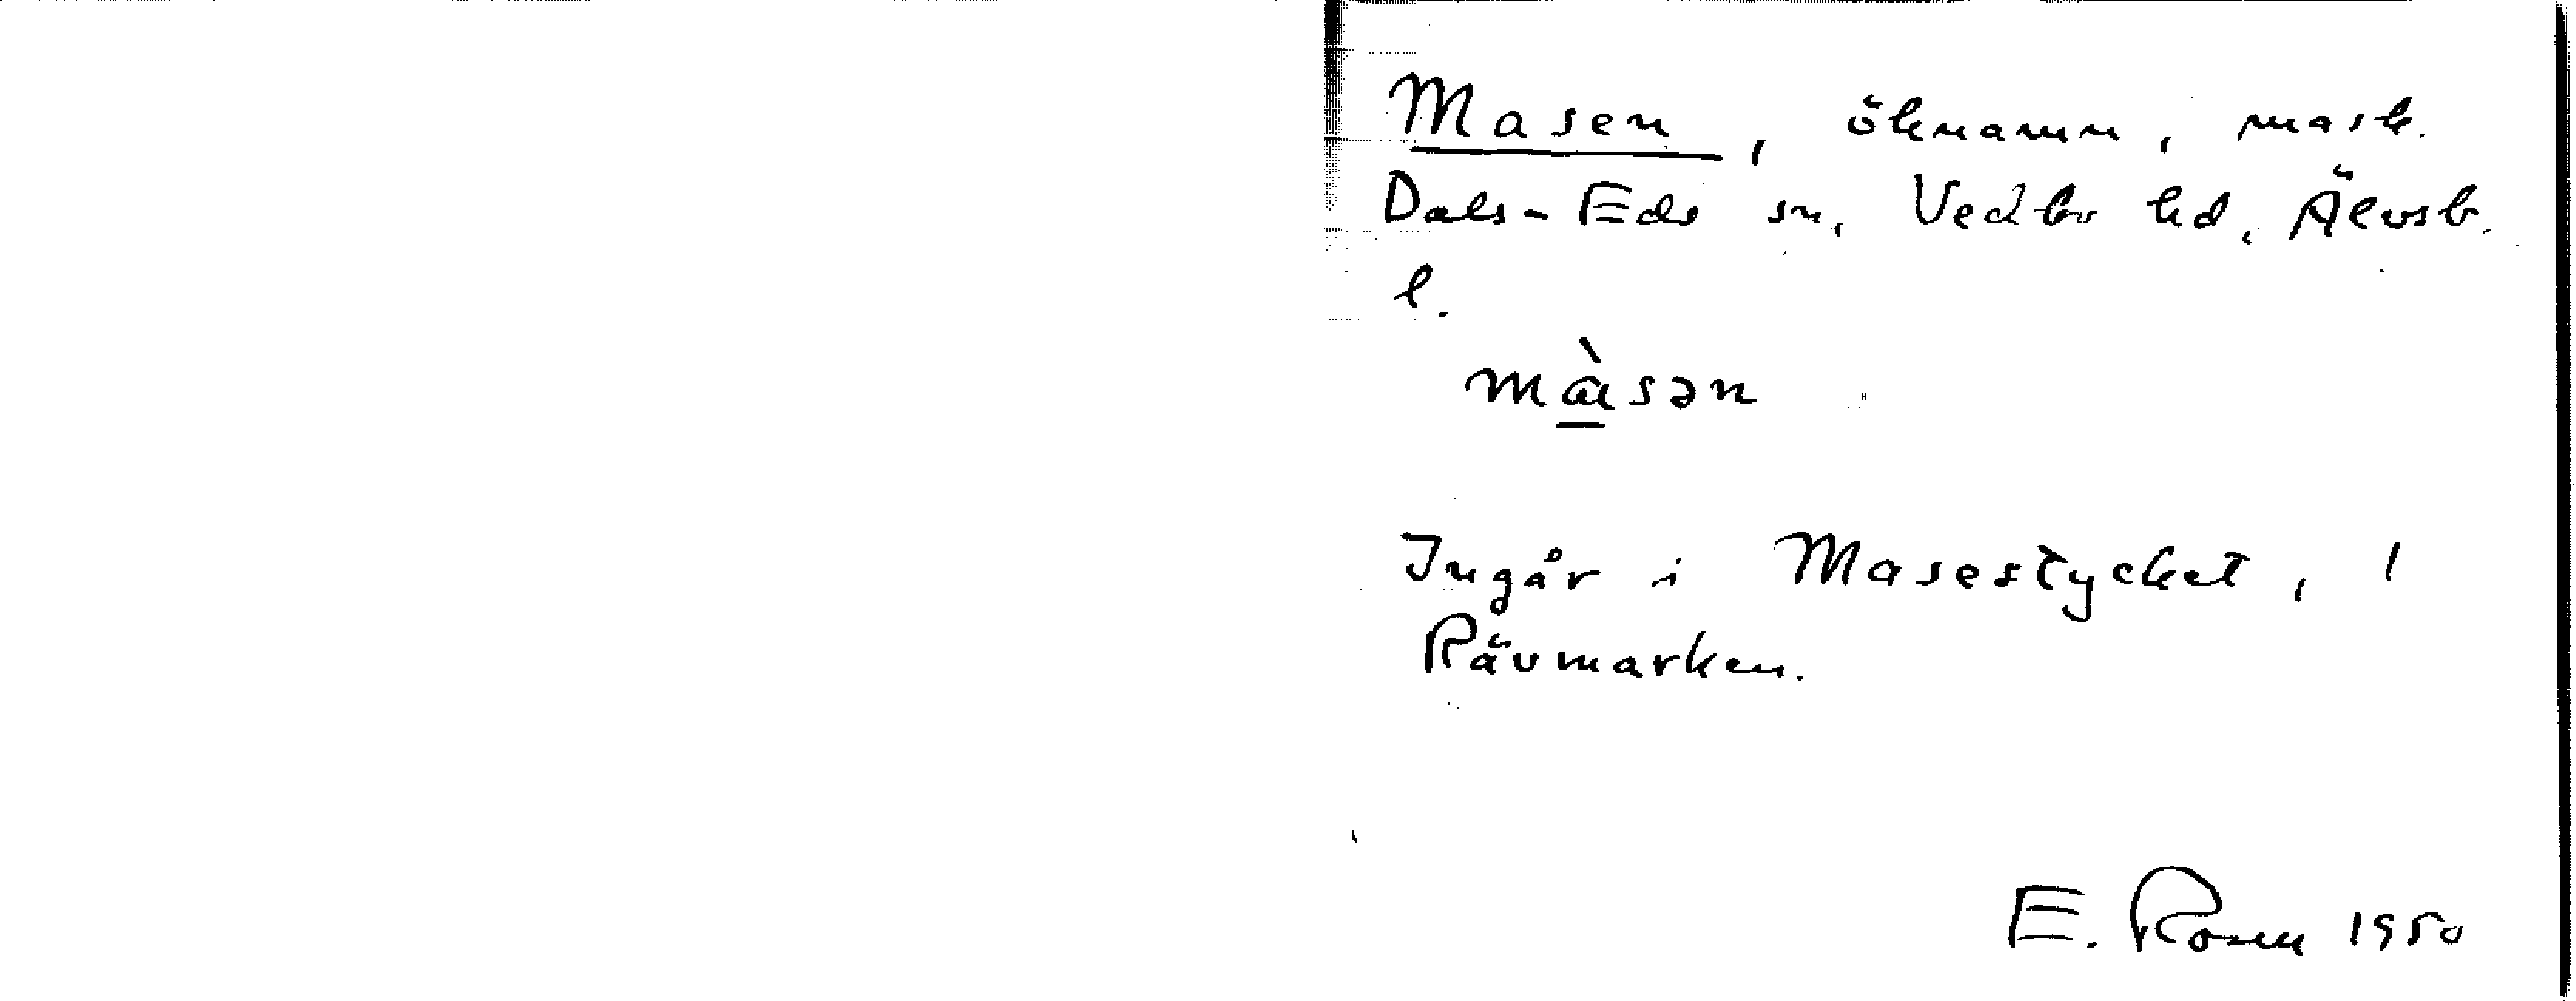 Masen, öknamn, mask.
Dals-Eds sn, Vedbo hd, Älvsb.
l.
mɑ̀sən
Ingår i Masestycket, 1
Rävmarken.
E. Rosen 1950